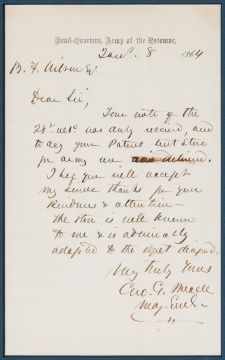 Head-Quarters, Army of the Potomac,
Jany. 8 1864
B. F.
Dear Sir,
Your note of the
28th ulto was duly received, and
to day your Patent Tent Stove
for army use
I beg you will accept
my sincere thanks for your
kindness & attention—
the stove is well known
to me & is admirably
adapted to the object designed.
Very truly Yours
Geo. G. Meade
Maj. Genl.